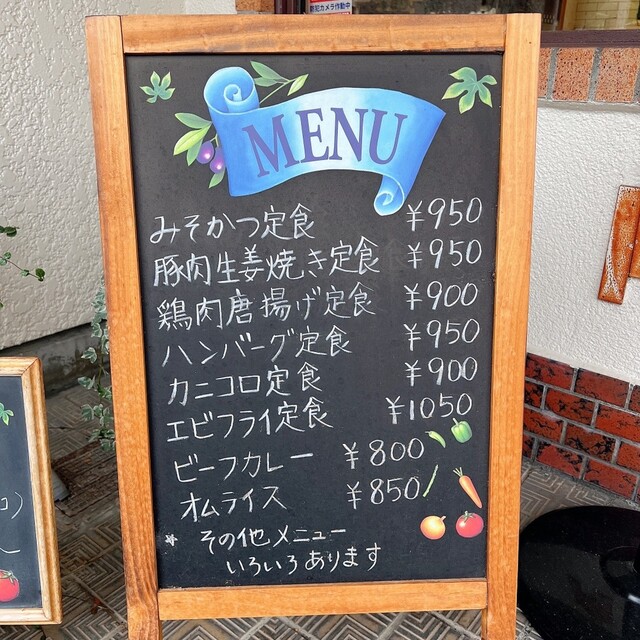 防犯カメラ作動中
MENU
みそかつ定食 ¥950
豚肉生姜焼き定食 ¥950
鶏肉唐揚げ定食 ¥900
ハンバーグ定食 ¥950
カニコロ定食 ¥900
エビフライ定食 ¥1050
ビーフカレー ¥800
オムライス ¥850
* その他メニュー
いろいろあります